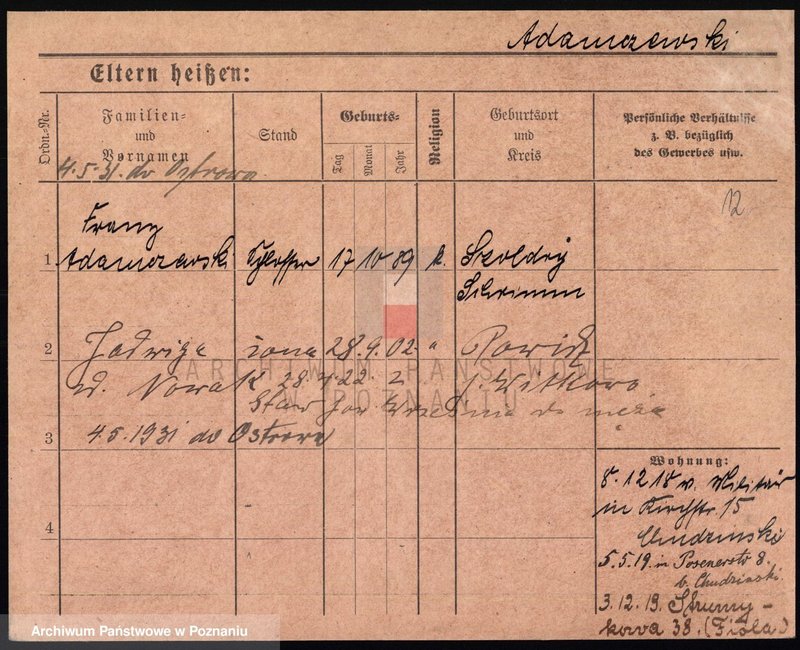 Adamczewski
Eltern heißen:
Ordn.-Nr.
Familien-
und
Vornamen
Stand
Geburts-
Tag
Monat
Jahr
Religion
Geburtsort
und
Kreis
Persönliche Verhältnisse
z. B. bezüglich
des Gewerbes usw.
4.5.31. do Ostrowa
12
Franz
1. Adamczewski Schlosser 17 10 89 k.
Schrimm
2 Jadwiga żona 28.9.02. "
d. Nowak 28.7.22. z j. Witkowo
Września do męża
3 4.5.1931 do Ostrowa
4
Wohnung:
8.12 18 v. Militär
in Kirchstr. 15
Chudzinski
5.5.19. in Posenerstr 8.
b. Chudzinski.
3.12.19. Strumy-
kowa 38. (Fiola)
ARCHIWUM PAŃSTWOWE
W POZNANIU
Archiwum Państwowe w Poznaniu